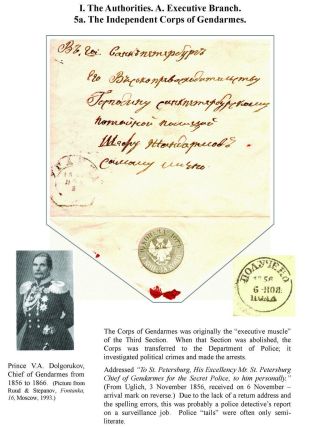 I. The Authorities. A. Executive Branch.
5a. The Independent Corps of Gendarmes.
Въ Го: Санкъпетербургъ
Его Высокопревосходительству
Господину санкпетербурскому
потайной полицой
Шефу Жандармовъ
самому лично
ПОЛУЧЕНО
1856
6 НОЯ
The Corps of Gendarmes was originally the “executive muscle”
of the Third Section. When that Section was abolished, the
Corps was transferred to the Department of Police; it
investigated political crimes and made the arrests.
Prince V.A. Dolgorukov,
Chief of Gendarmes from
1856 to 1866. (Picture from
Ruud & Stepanov, Fontanka,
16, Moscow, 1993.)
Addressed “To St. Petersburg, His Excellency Mr. St Petersburg
Chief of Gendarmes for the Secret Police, to him personally.”
(From Uglich, 3 November 1856, received on 6 November –
arrival mark on reverse.) Due to the lack of a return address and
the spelling errors, this was probably a police detective’s report
on a surveillance job. Police “tails” were often only semi-
literate.